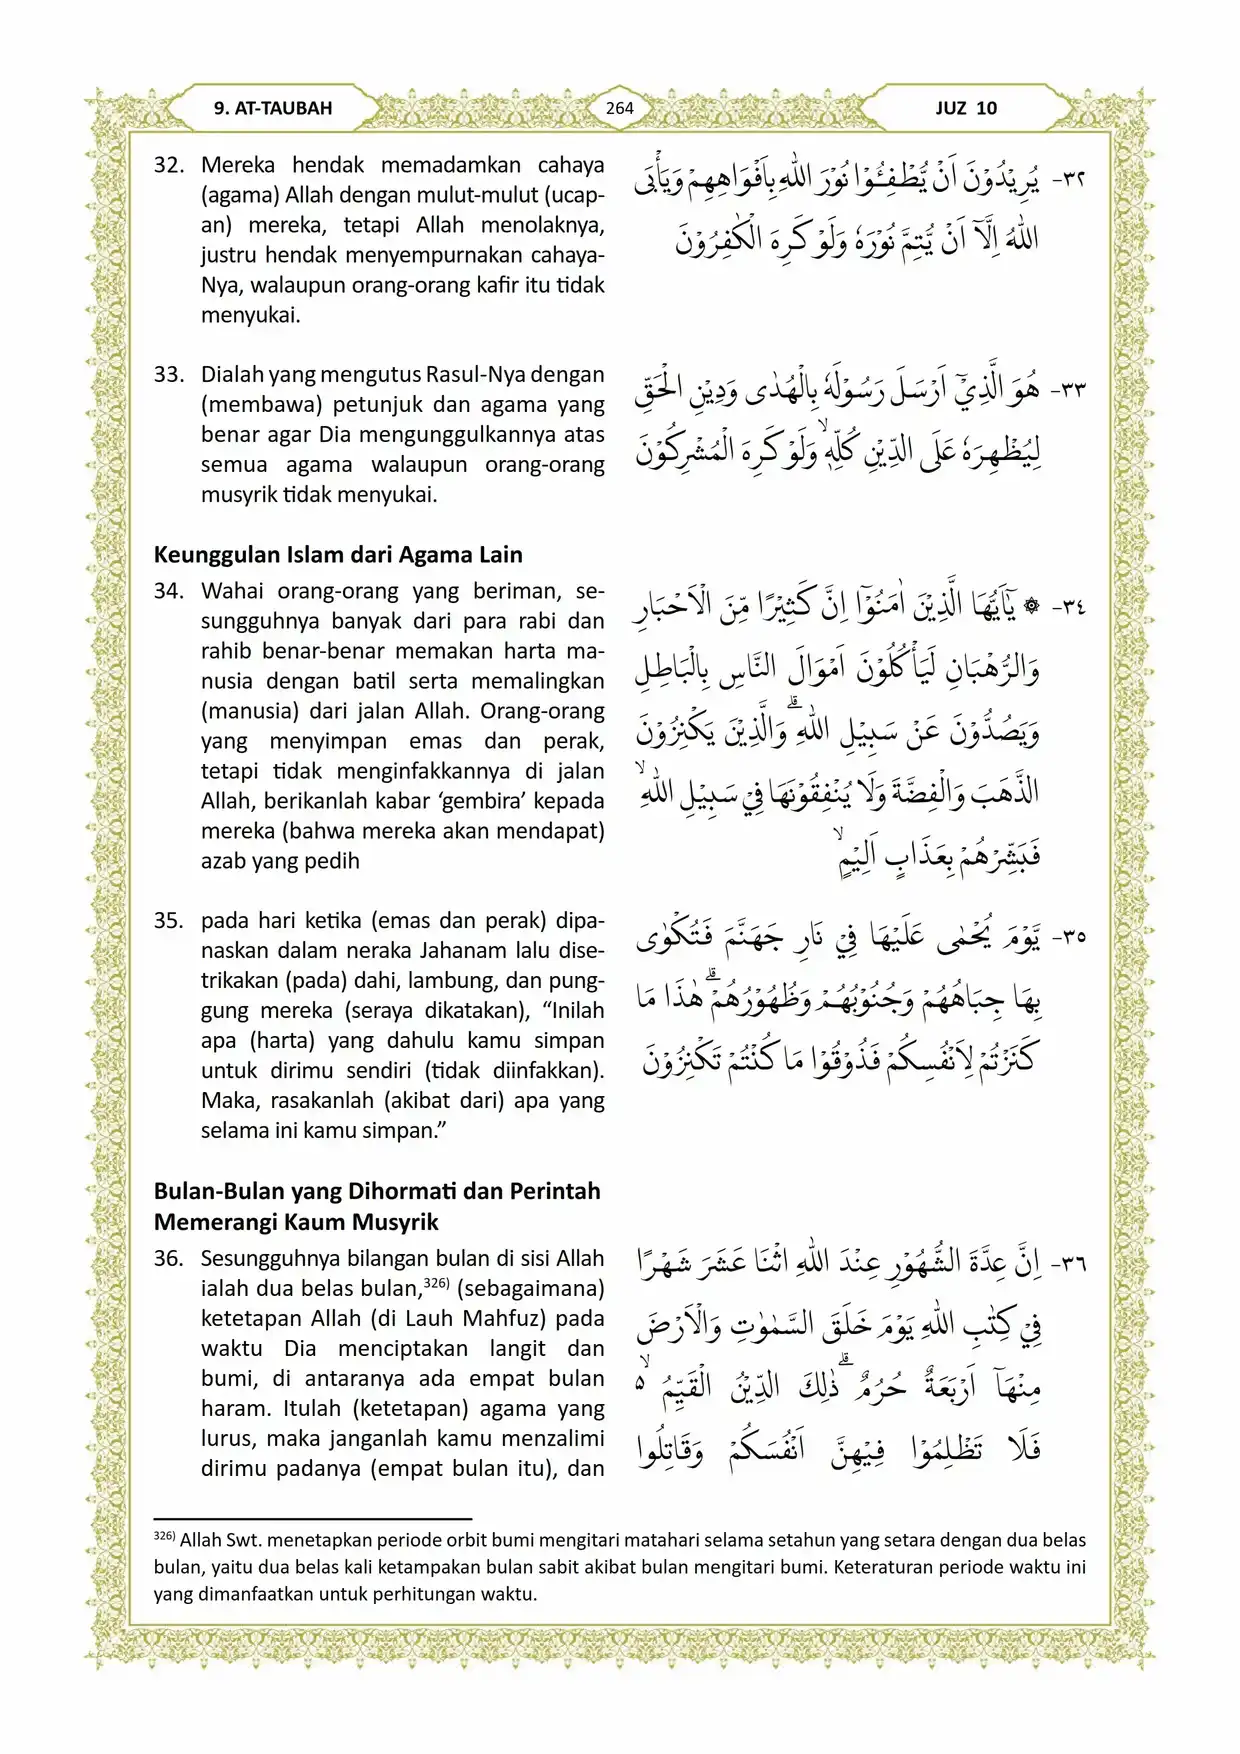 9. AT-TAUBAH
264
JUZ 10
32. Mereka hendak memadamkan cahaya
(agama) Allah dengan mulut-mulut (ucap-
an) mereka, tetapi Allah menolaknya,
justru hendak menyempurnakan cahaya-
Nya, walaupun orang-orang kafir itu tidak
menyukai.
٣٢- يُرِيْدُوْنَ اَنْ يُّطْفِـُٔوْا نُوْرَ اللّٰهِ بِاَفْوَاهِهِمْ وَيَأْبَى
اللّٰهُ اِلَّآ اَنْ يُّتِمَّ نُوْرَهٗ وَلَوْ كَرِهَ الْكٰفِرُوْنَ
33. Dialah yang mengutus Rasul-Nya dengan
(membawa) petunjuk dan agama yang
benar agar Dia mengunggulkannya atas
semua agama walaupun orang-orang
musyrik tidak menyukai.
٣٣- هُوَ الَّذِيْٓ اَرْسَلَ رَسُوْلَهٗ بِالْهُدٰى وَدِيْنِ الْحَقِّ
لِيُظْهِرَهٗ عَلَى الدِّيْنِ كُلِّهٖۙ وَلَوْ كَرِهَ الْمُشْرِكُوْنَ
Keunggulan Islam dari Agama Lain
34. Wahai orang-orang yang beriman, se-
sungguhnya banyak dari para rabi dan
rahib benar-benar memakan harta ma-
nusia dengan batil serta memalingkan
(manusia) dari jalan Allah. Orang-orang
yang menyimpan emas dan perak,
tetapi tidak menginfakkannya di jalan
Allah, berikanlah kabar ‘gembira’ kepada
mereka (bahwa mereka akan mendapat)
azab yang pedih
٣٤- ۞ يٰٓاَيُّهَا الَّذِيْنَ اٰمَنُوْٓا اِنَّ كَثِيْرًا مِّنَ الْاَحْبَارِ
وَالرُّهْبَانِ لَيَأْكُلُوْنَ اَمْوَالَ النَّاسِ بِالْبَاطِلِ
وَيَصُدُّوْنَ عَنْ سَبِيْلِ اللّٰهِۗ وَالَّذِيْنَ يَكْنِزُوْنَ
الذَّهَبَ وَالْفِضَّةَ وَلَا يُنْفِقُوْنَهَا فِيْ سَبِيْلِ اللّٰهِۙ
فَبَشِّرْهُمْ بِعَذَابٍ اَلِيْمٍۙ
35. pada hari ketika (emas dan perak) dipa-
naskan dalam neraka Jahanam lalu dise-
trikakan (pada) dahi, lambung, dan pung-
gung mereka (seraya dikatakan), “Inilah
apa (harta) yang dahulu kamu simpan
untuk dirimu sendiri (tidak diinfakkan).
Maka, rasakanlah (akibat dari) apa yang
selama ini kamu simpan.”
٣٥- يَّوْمَ يُحْمٰى عَلَيْهَا فِيْ نَارِ جَهَنَّمَ فَتُكْوٰى
بِهَا جِبَاهُهُمْ وَجُنُوْبُهُمْ وَظُهُوْرُهُمْۗ هٰذَا مَا
كَنَزْتُمْ لِاَنْفُسِكُمْ فَذُوْقُوْا مَا كُنْتُمْ تَكْنِزُوْنَ
Bulan-Bulan yang Dihormati dan Perintah
Memerangi Kaum Musyrik
36. Sesungguhnya bilangan bulan di sisi Allah
ialah dua belas bulan,326) (sebagaimana)
ketetapan Allah (di Lauh Mahfuz) pada
waktu Dia menciptakan langit dan
bumi, di antaranya ada empat bulan
haram. Itulah (ketetapan) agama yang
lurus, maka janganlah kamu menzalimi
dirimu padanya (empat bulan itu), dan
٣٦- اِنَّ عِدَّةَ الشُّهُوْرِ عِنْدَ اللّٰهِ اثْنَا عَشَرَ شَهْرًا
فِيْ كِتٰبِ اللّٰهِ يَوْمَ خَلَقَ السَّمٰوٰتِ وَالْاَرْضَ
مِنْهَآ اَرْبَعَةٌ حُرُمٌۗ ذٰلِكَ الدِّيْنُ الْقَيِّمُ ەۙ
فَلَا تَظْلِمُوْا فِيْهِنَّ اَنْفُسَكُمْ وَقَاتِلُوا
326) Allah Swt. menetapkan periode orbit bumi mengitari matahari selama setahun yang setara dengan dua belas
bulan, yaitu dua belas kali ketampakan bulan sabit akibat bulan mengitari bumi. Keteraturan periode waktu ini
yang dimanfaatkan untuk perhitungan waktu.